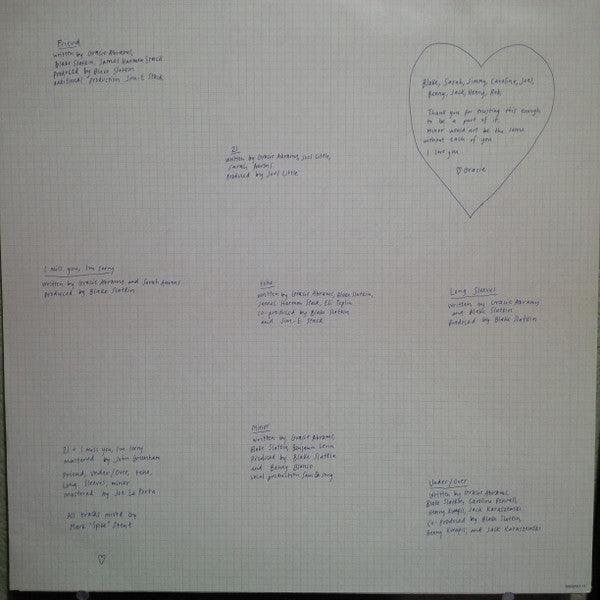 Friend
written by Gracie Abrams,
Blake Slatkin, James Harmon Stack
Produced by Blake Slatkin
additional production Jim-E Stack
Blake, Sarah, Jimmy, Caroline, Joel,
Benny, Jack, Henry, Rob,
Thank you for trusting this enough
to be a part of it.
minor would not be the same
without each of you
I love you.
♡ Gracie
21
written by Gracie Abrams, Joel Little,
Sarah Aarons
Produced by Joel Little
I miss you, I'm sorry
written by Gracie Abrams and Sarah Aarons
Produced by Blake Slatkin
tehe
written by Gracie Abrams, Blake Slatkin,
James Harmon Stack, Eli Teplin
co-produced by Blake Slatkin
and Jim-E Stack
Long Sleeves
written by Gracie Abrams
and Blake Slatkin
Produced by Blake Slatkin
Minor
written by Gracie Abrams,
Blake Slatkin, Benjamin Levin
Produced by Blake Slatkin
and Benny Blanco
vocal production
21 + I miss you, I'm sorry
mastered by John Greenham
Friend, Under/Over, tehe,
Long Sleeves, minor
mastered by Joe La Porta
All tracks mix'd by
Mark "Spike" Stent
♡
Under/Over
written by Gracie Abrams,
Blake Slatkin, Caroline Pennell,
Henry Kwapis, Jack Karaszewski
Co-Produced by Blake Slatkin,
Henry Kwapis, and Jack Karaszewski